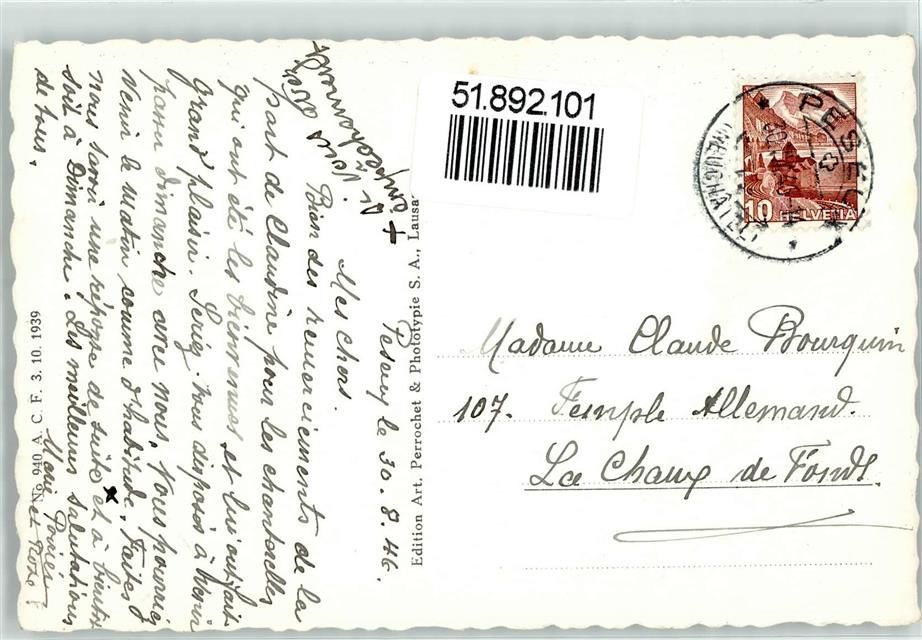 51.892.101
PESEUX
(NEUCHATEL)
10 HELVETIA
Madame Claude Bourquin
107. Temple Allemand.
La Chaux de Fonds.
Edition Art. Perrochet & Phototypie S. A., Lausa
No 940 A. C. F. 3. 10. 1939
Peseux le 30. 8. 46.
Mes chers.
Bien des remerciements de la
part de Claudine pour les chanterelles
qui ont été les bienvenues, et lui ont fait
Grand plaisir. vous disposés à venir
passer dimanche avec nous. Vous pourriez
venir le matin comme d'habitude. Faites
nous savoir une réponse de suite et à bientôt
soit à Dimanche. Les meilleures salutations
de tous.